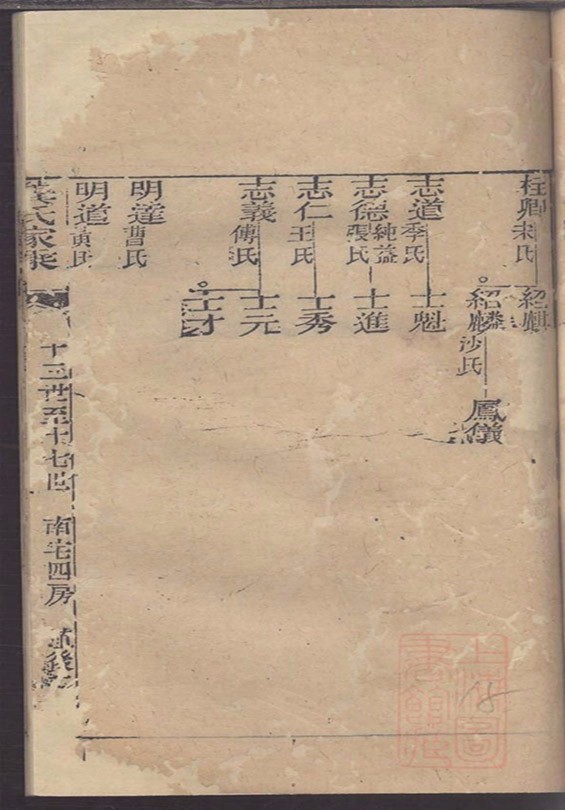 柱卿 朱氏 紹麒
紹麟 沙氏 鳳儀
志道 季氏 士魁
志德 純益 張氏 士進
志仁 王氏 士秀
志義 傅氏 士元
士才
明達 曹氏
明道 黄氏
氏家乘 十三世至十七世 南宅四房
15